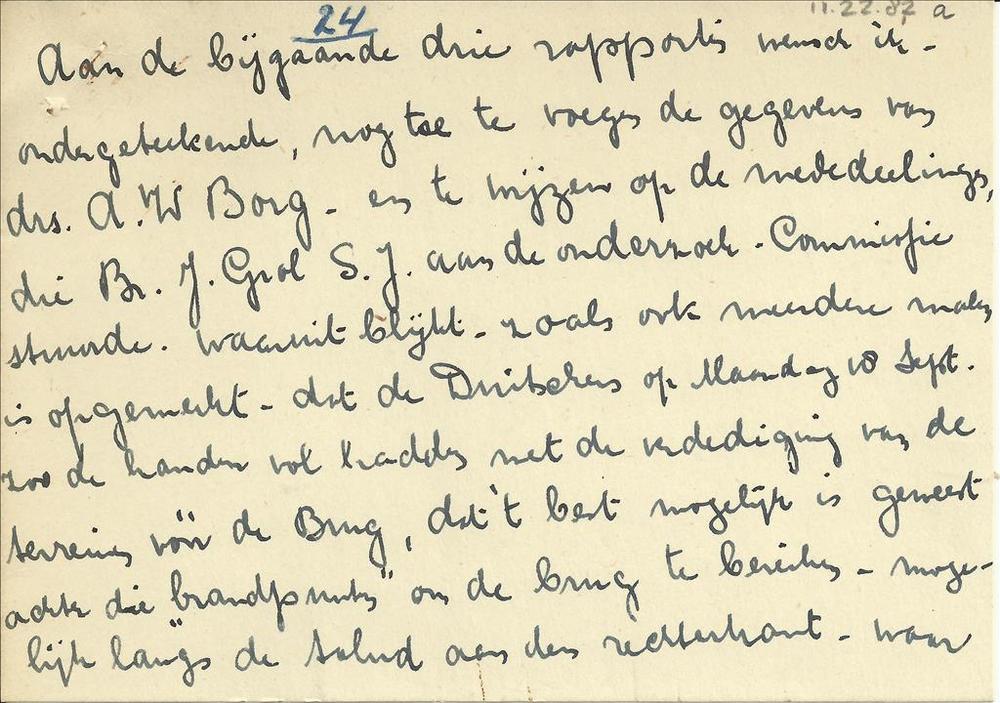 24
11.22.82 a
Aan de bijgaande drie rapporten wensch ik -
ondergeteekende, nog toe te voegen de gegevens van
drs. A.W Borg - en te wijzen op de mededeelingen,
die Br. J. Grol S.J. aan de onderzoek - Commissie
stuurde. waaruit blijkt - zooals ook meerdere malen
is opgemerkt - dat de Duitschers op Maandag 18 Sept.
zoo de handen vol hadden met de verdediging van de
terreinen vóór de Brug, dat 't best mogelijk is geweest
achter die "brandpunten" om de brug te bereiken - moge-
lijk langs de talud aan den rechterkant - waar